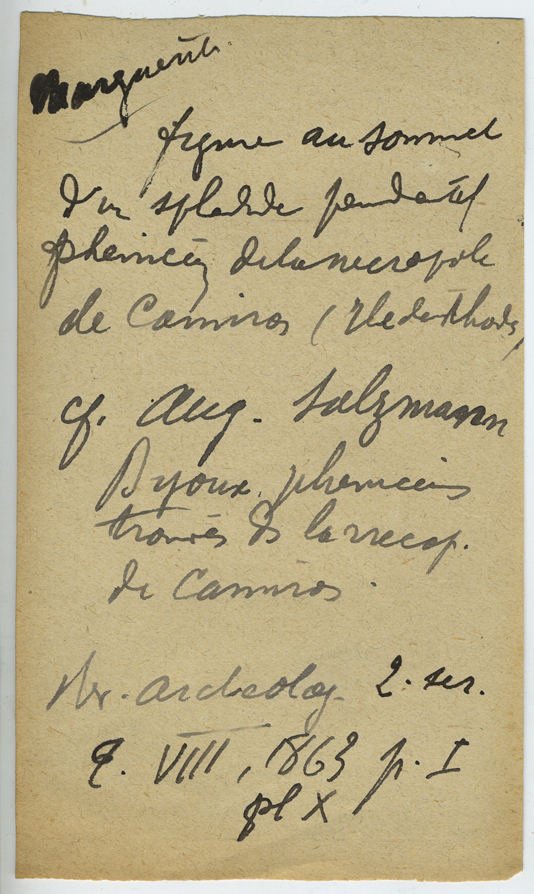 Marguerite.
figure au sommet
d'un spledide pendatif
phenicien de la necropole
de Camiros (Ile de Rhodes)
cf. Aug. Salzmann
Bijoux pheniciens
trouvés ds la necop.
de Camiros.
Rev. archeolog. 2. ser.
t. VIII, 1863 p. I
pl X